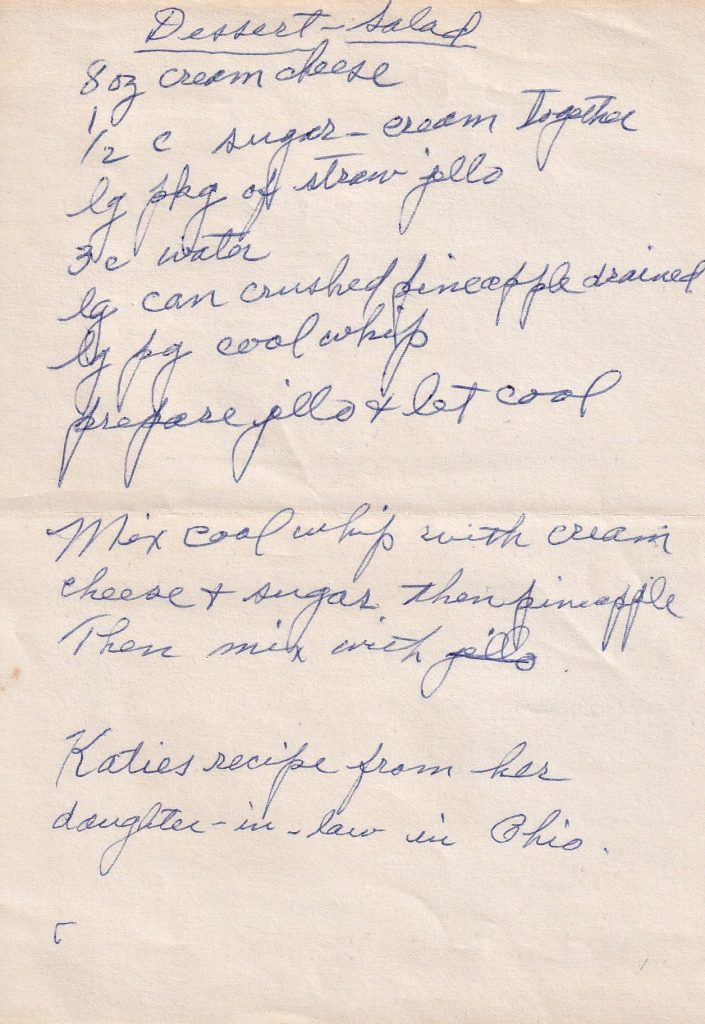 Dessert-Salad
8 oz cream cheese
1/2 c sugar - cream together
lg pkg of straw jello
3 c water
lg can crushed pineapple drained
lg pg cool whip
prepare jello + let cool
Mix cool whip with cream
cheese + sugar then pineapple
Then mix with jello
Katies recipe from her
daughter-in-law in Ohio.